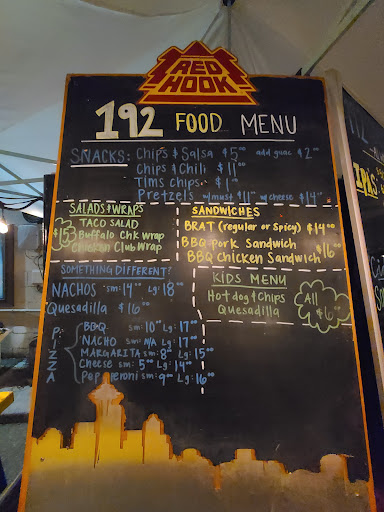 RED
HOOK
192 FOOD MENU
SNACKS: Chips & Salsa $5⁰⁰ add guac $2⁰⁰
Chips & Chili $11⁰⁰
Tims chips $1⁰⁰
Pretzels w/must $11⁰⁰ w/cheese $14⁰⁰
SALADS & WRAPS
TACO SALAD
$15 Buffalo Chk Wrap
Chicken Club Wrap
SANDWICHES
BRAT (regular or Spicy) $14⁰⁰
BBQ Pork Sandwich
BBQ Chicken Sandwich $16⁰⁰
SOMETHING DIFFERENT!
NACHOS sm: 14⁰⁰ Lg: 18⁰⁰
Quesadilla $16⁰⁰
KIDS MENU
Hot dog & Chips
Quesadilla
All
$6⁰⁰
PIZZA
BBQ sm: 10⁰⁰ Lg: 17⁰⁰
NACHO sm: N/A Lg: 17⁰⁰
MARGARITA sm: 8⁰⁰ Lg: 15⁰⁰
Cheese sm: 5⁰⁰ Lg: 14⁰⁰
Pepperoni sm: 9⁰⁰ Lg: 16⁰⁰